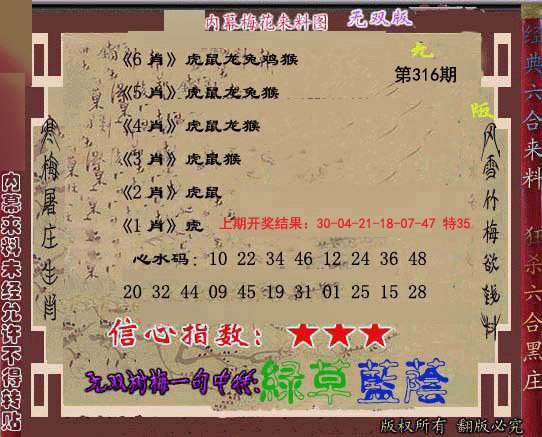 内幕梅花来料图 无双版
《6 肖》虎鼠龙兔鸡猴
第316期
《5 肖》虎鼠龙兔猴
《4 肖》虎鼠龙猴
《3 肖》虎鼠猴
《2 肖》虎鼠
《1 肖》虎
上期开奖结果：30-04-21-18-07-47 特35
心水码：10 22 34 46 12 24 36 48
20 32 44 09 45 19 31 01 25 15 28
信心指数：★★★
綠草藍蔭
版权所有 翻版必究
寒梅屠庄生肖
风雪竹梅欲钱料
内幕来料未经允许不得转贴
经典六合来料
狂杀六合黑庄